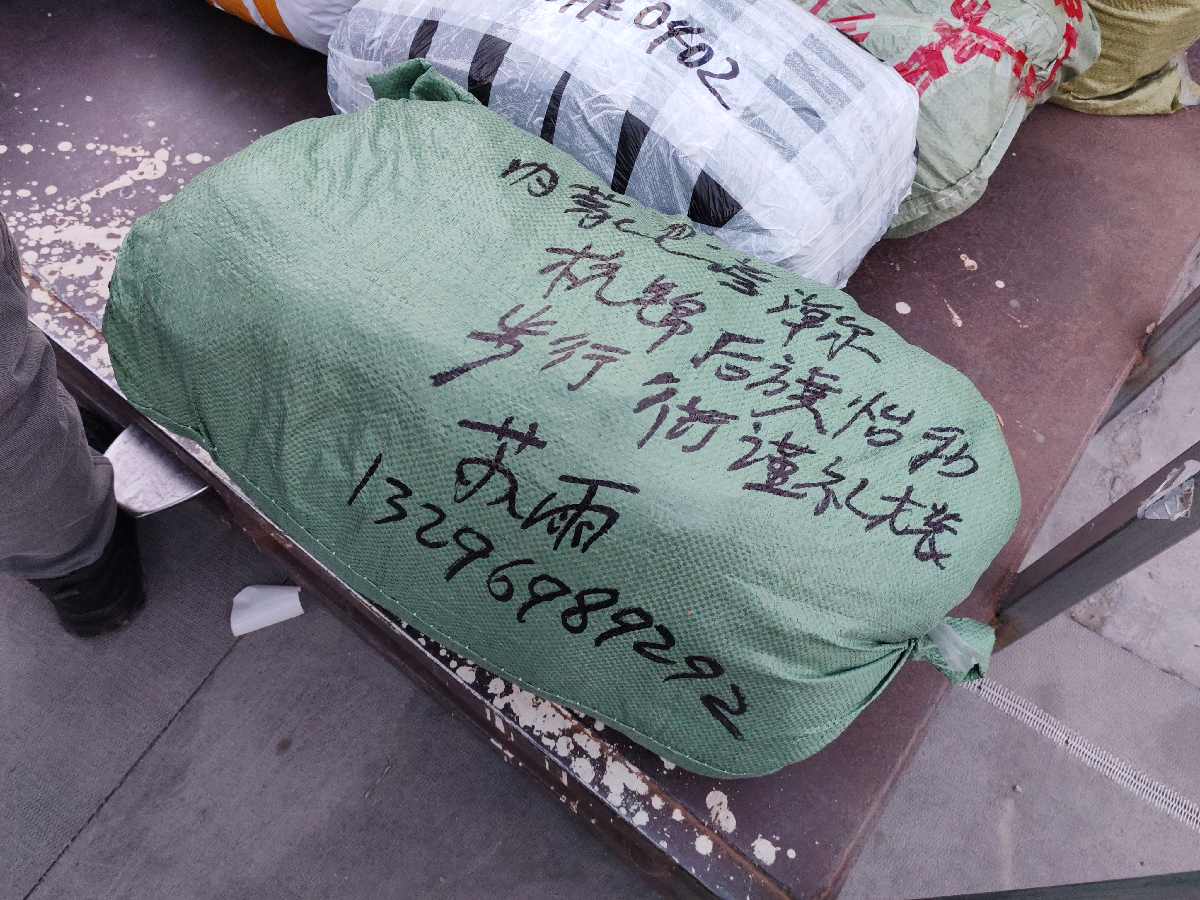 0402
内蒙巴彦淖尔
杭锦后旗怡和
步行街谨礼大装
苏雨
13296989292